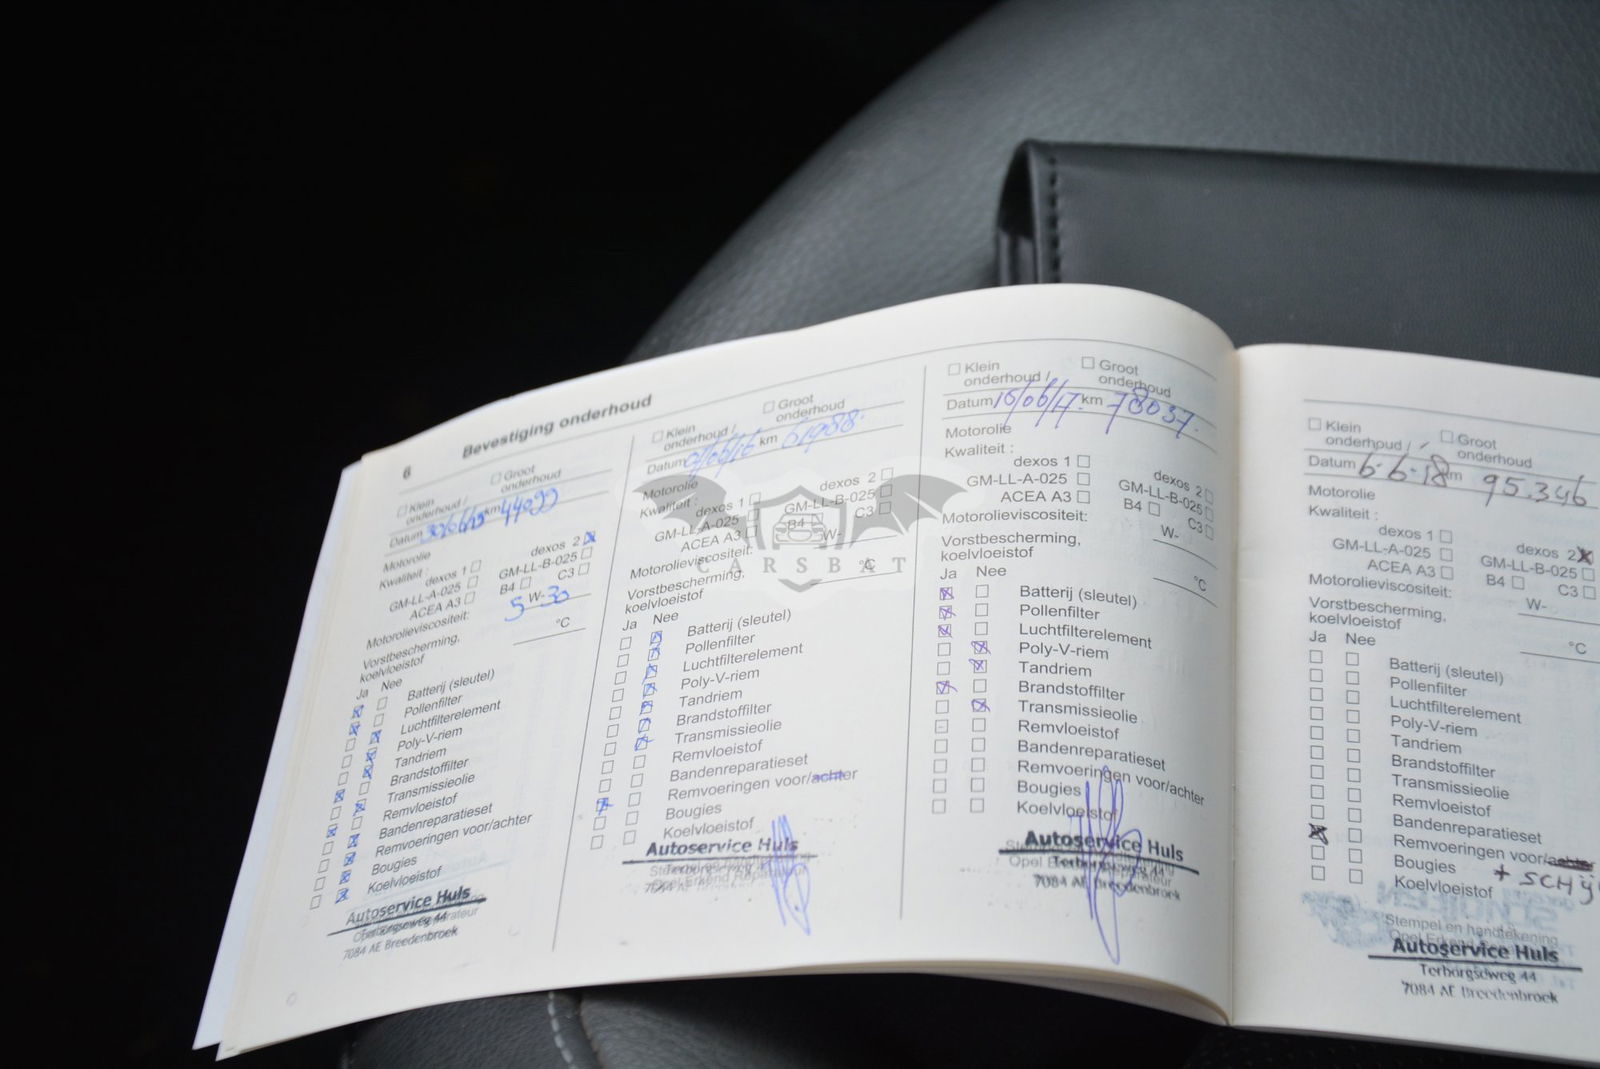 6
Bevestiging onderhoud
Klein onderhoud /
Groot onderhoud
Datum km 44099
Motorolie
Kwaliteit :
dexos 1
dexos 2
GM-LL-A-025
GM-LL-B-025
ACEA A3
B4
C3
Motorolieviscositeit:
5 W- 30
Vorstbescherming,
koelvloeistof
°C
Ja Nee
Batterij (sleutel)
Pollenfilter
Luchtfilterelement
Poly-V-riem
Tandriem
Brandstoffilter
Transmissieolie
Remvloeistof
Bandenreparatieset
Remvoeringen voor/achter
Bougies
Koelvloeistof
Autoservice Huls
Terborgseweg 44
7084 AE Breedenbroek
Klein onderhoud /
Groot onderhoud
Datum 01/06/16 km 61988
Motorolie
Kwaliteit :
dexos 1
dexos 2
GM-LL-A-025
GM-LL-B-025
ACEA A3
B4
C3
Motorolieviscositeit:
W-
Vorstbescherming,
koelvloeistof
°C
Ja Nee
Batterij (sleutel)
Pollenfilter
Luchtfilterelement
Poly-V-riem
Tandriem
Brandstoffilter
Transmissieolie
Remvloeistof
Bandenreparatieset
Remvoeringen voor/achter
Bougies
Koelvloeistof
Autoservice Huls
7084 AE
CARSBAT
Klein onderhoud /
Groot onderhoud
Datum 15/06/17 km 78037
Motorolie
Kwaliteit :
dexos 1
dexos 2
GM-LL-A-025
GM-LL-B-025
ACEA A3
B4
C3
Motorolieviscositeit:
W-
Vorstbescherming,
koelvloeistof
°C
Ja Nee
Batterij (sleutel)
Pollenfilter
Luchtfilterelement
Poly-V-riem
Tandriem
Brandstoffilter
Transmissieolie
Remvloeistof
Bandenreparatieset
Remvoeringen voor/achter
Bougies
Koelvloeistof
Autoservice Huls
Terborgseweg 44
7084 AE Breedenbroek
Klein onderhoud /
Groot onderhoud
Datum 6-6-18 km 95.346
Motorolie
Kwaliteit :
dexos 1
dexos 2
GM-LL-A-025
GM-LL-B-025
ACEA A3
B4
C3
Motorolieviscositeit:
W-
Vorstbescherming,
koelvloeistof
°C
Ja Nee
Batterij (sleutel)
Pollenfilter
Luchtfilterelement
Poly-V-riem
Tandriem
Brandstoffilter
Transmissieolie
Remvloeistof
Bandenreparatieset
Remvoeringen voor/achter
Bougies
Koelvloeistof
Stempel en handtekening
Opel Erkend
Autoservice Huls
Terborgseweg 44
7084 AE Breedenbroek